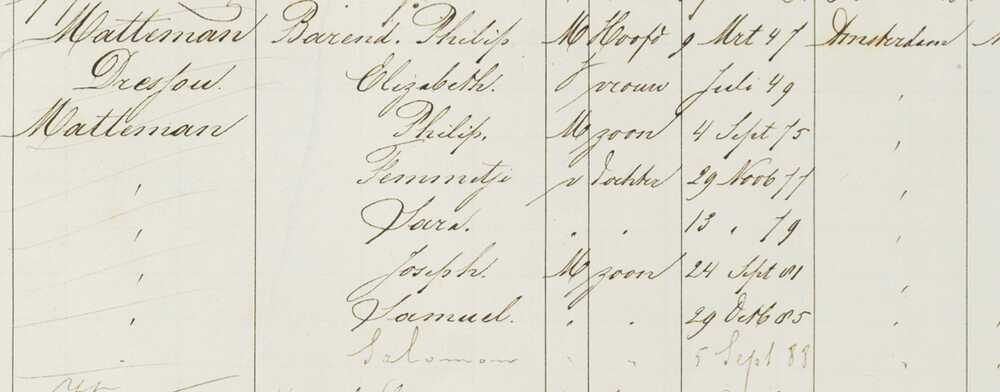 Matteman Barend. Philip M Hoofd 9 Mrt 47 Amsterdam
Dressou. Elizabeth. V vrouw Juli 49 "
Matteman Philip. M zoon 4 Sept 75
" Femmetje v dochter 29 Novb 77 "
" Sara. " " 13 " 79 "
" Joseph. M zoon 24 Sept 81 "
" Samuel. " " 29 Octb 85 "
" Salomon " " 5 Sept 88 "